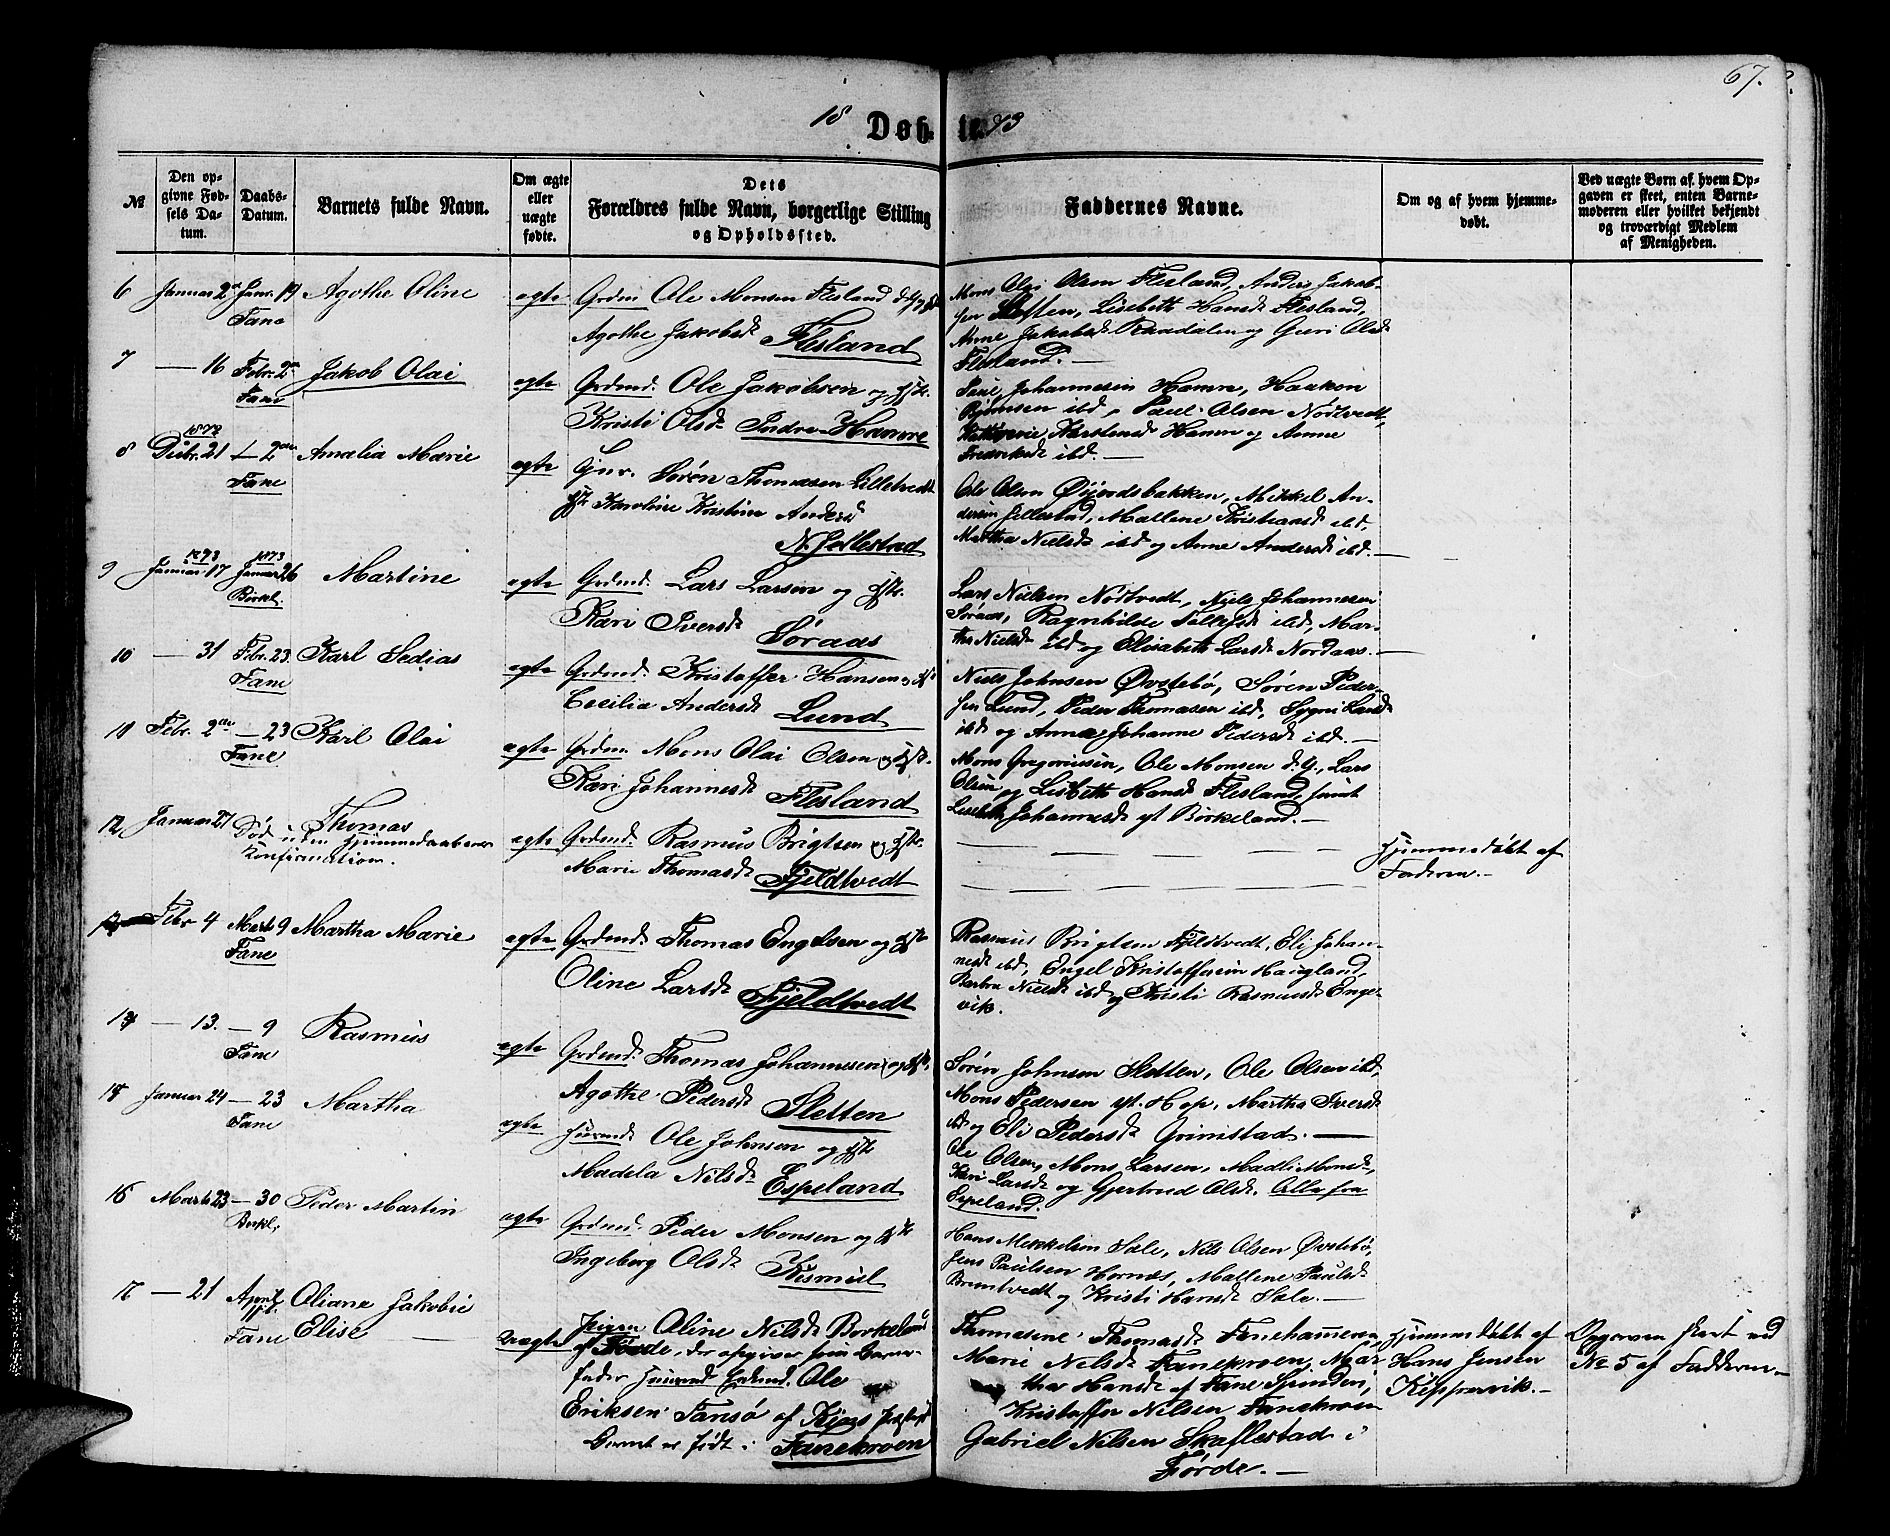 67.
18 Døbte 73
№
Den opgivne Fødsels Datum.
Daabs-Datum.
Barnets fulde Navn.
Om ægte eller uægte fødte.
Dets Forældres fulde Navn, borgerlige Stilling og Opholdssted.
Faddernes Navne.
Om og af hvem hjemmedøbt.
Ved uægte Børn af hvem Opgaven er skeet, enten Barnemoderen eller hvilket bekjendt og troværdigt Medlem af Menigheden.
6 Januar 2 Janr. 19 Agothe Oline ægte Grdmd Ole Monsen Flesland
Fane
Agothe Jakobsdt Flesland
Mons Olai Olsen Flesland, Anders Jakob-
sen Sletten, Lisebeth Hansdt Flesland,
Anne Jakobsdt Raadalen og Guri Olsdt
Flesland.—
7 — 16 Febr. 2den Jakob Olai ægte Grdmd. Ole Jakobsen og Hstr.
Fane
Kristi Olsdt Indre-Hamre
Paul Johannesen Hamre, Haakon
Bjørnsen ibd, Paul Olsen Nødtvedt,
Karstensdt Hamre og Anne
Fredriksdt ibd.—
8 1872 Dcbr. 21 — 2den Amalia Marie ægte Søren Thomasen Lilletvedt
Fane
Hstr Karoline Kristine Andersdt
N. Jellestad
Ole Olsen Øyjordsbakken, Mikkel An-
dersen Jellestad, Mallene Kristiansdt ibd,
Martha Nielsdt ibd og Anne Andersdt ibd.—
9 1873 Januar 17 1873 Januar 26 Martine ægte Grdmd. Lars Larsen og Hstr.
Birkel.
Kari Iversdt Søraas
Lars Nielsen Nødtvedt, Niels Johannesen
Søraas, Ragnhilde Tollefsdt ibd, Mar-
tha Nielsdt ibd og Elisabeth Larsdt Nordaas.—
10 — 31 Febr. 23. Karl Sedias ægte Grdmd. Kristoffer Hansen og Hstr
Fane
Cecilia Andersdt Lund
Niels Johnsen Øvstebø, Søren Peder-
sen Lund, Peder Thomasen ibd,
ibd og Anne Johanne Pedersdt ibd.—
11 Febr. 2den — 23 Karl Olai ægte Grdmd. Mons Olai Olsen og Hstr.
Fane
Kari Johannesdt Flesland
Mons Gregoriusen, Ole Monsen d.y., Lars
Olsen og Lisbeth Hansdt Flesland, samt
Lisebeth Johannesdt yt Birkeland.—
12 Januar 27 Thomas ægte Grdmd. Rasmus Brigtsen og Hstr.
Død uden Hjemmedaabens
Konfirmation.
Marie Thomasdt Fjeldtvedt
Hjemmedøbt af
Faderen.—
13 Febr 4 Marts 9 Martha Marie ægte Grdmd. Thomas Engelsen og Hstr
Fane
Oline Larsdt Fjeldtvedt
Rasmus Brigtsen Fjeldtvedt, Eli Johan-
nesdt ibd, Engel Kristoffersen Haugland,
Barbra Nielsdt ibd og Kristi Rasmusdt Enge-
vik.
14 — 13. — 9 Rasmus ægte Grdmd. Thomas Johannessen og Hstr.
Fane
Agothe Pedersdt Sletten
Søren Johnsen Sletten, Ole Olsen ibd,
Mons Pedersen yt. Hop, Martha Iversdt
ibd og Eli Pedersdt Grimstad.—
15 Januar 24 — 23 Martha ægte Husmd Ole Johnsen og Hstr
Fane
Madela Nilsdt Espeland
Ole Olsen, Mons Larsen, Madli Monsdt,
Kari Larsdt og Gjertrud Olsdt. Alle fra
Espeland.
16 Marts 23 — 30 Peder Martin ægte Grdmd. Peder Monsen og Hstr
Birkel.
Ingeborg Olsdt Kismul
Hans Mikkelsen Hale, Nils Olsen Øvstebø,
Jens Paulsen Hornæs, Mallene Paulsdt
Brentvedt og Kristi Hansdt Hale.—
17 — 21 April Oliane Jakobie
Fane Elise —
uægte Pigen Oline Nilsdt Birkeland
af Førde, der opgiver som Barne-
fader Husmd Enkmd. Ole
Eriksen Tansø af Præstegj.
Barnet er født i Fanekroen
Thomasine Thomasdt Fanehammeren,
Marie Nilsdt Fanekroen, Mar-
tha Hansdt af Fane
Kristoffer Nilsen Fanekroen
Gabriel Nilsen Skaflestad i
Førde.—
Hjemmedøbt af
Hans Jensen
Kippervik.—
Opgaven skeet ved
№ 5 af Fadderne.—